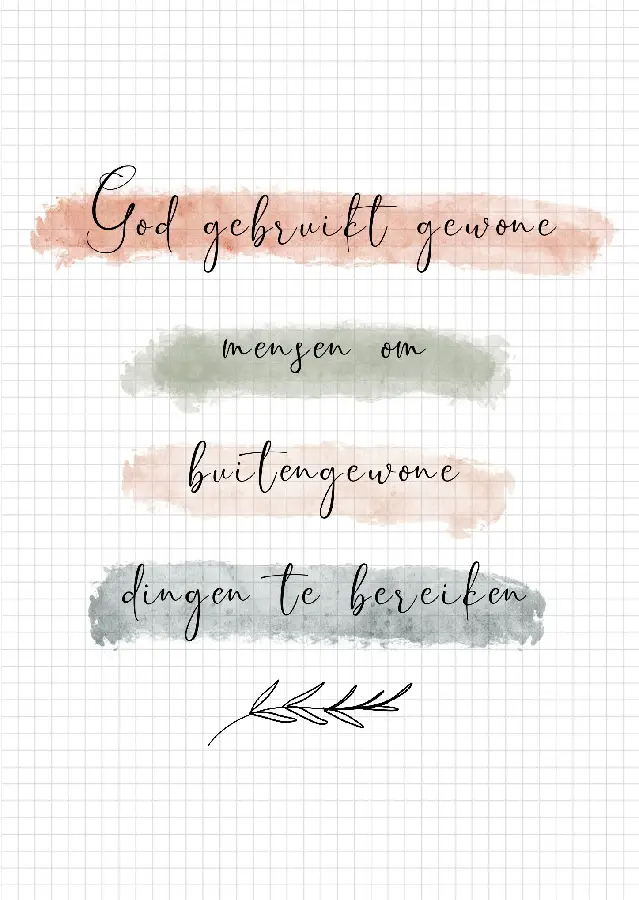 God gebruikt gewone
mensen om
buitengewone
dingen te bereiken